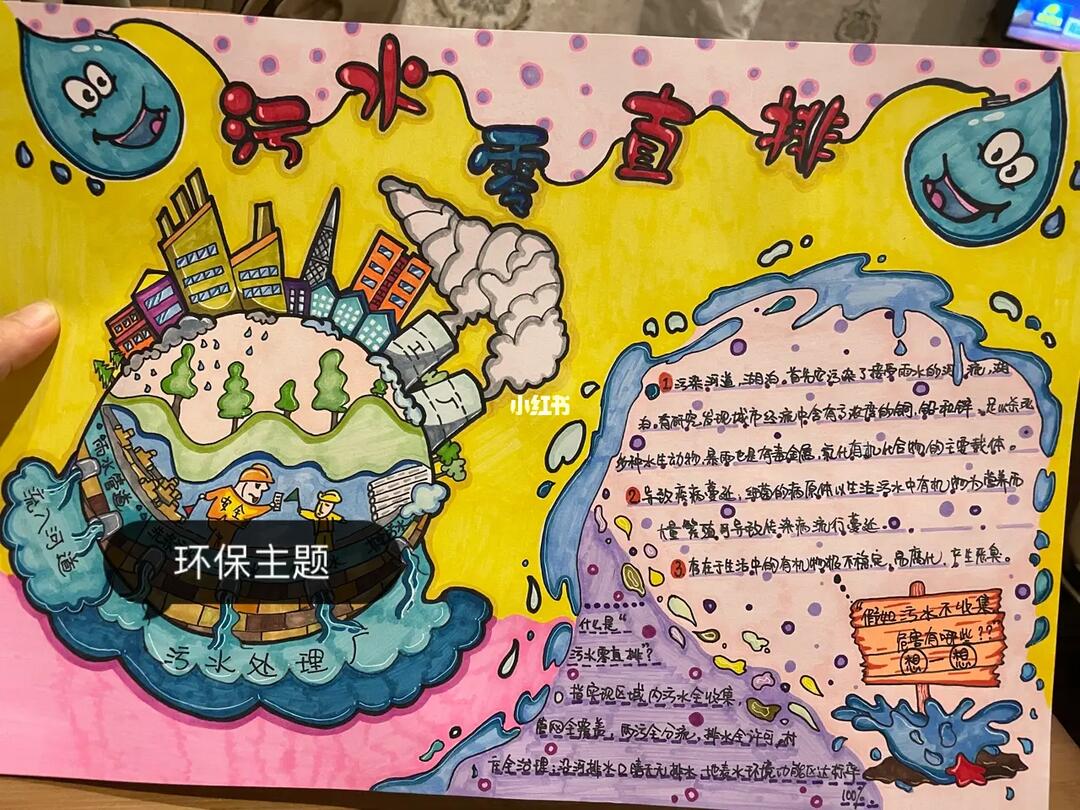 污水零直排
小红书
工厂
雨水管道
流入河道
安全
环保主题
污水处理厂
①污染河道,湖泊。首先它污染了接受雨水的河流,湖
泊。有研究发现城市径流中含有了浓度的铜,铅和锌。足以杀死
多种水生动物,暴雨也是有毒金属,氧化有机化合物的主要载体。
②导致疾病蔓延,细菌的病原体以生活污水中有机物为营养而
大量繁殖可导致传染病流行蔓延
③存在于生活中的有机物极不稳定,易腐化,产生恶臭。
"假如污水不收集
危害有哪些??"
想一想
什么是"
污水零直排?
指实现区域内污水全收集,
管网全覆盖,雨污全分流,排水全许可,村
庄全治理;沿河排水口晴天无排水,地表水环境功能区达标率
100%